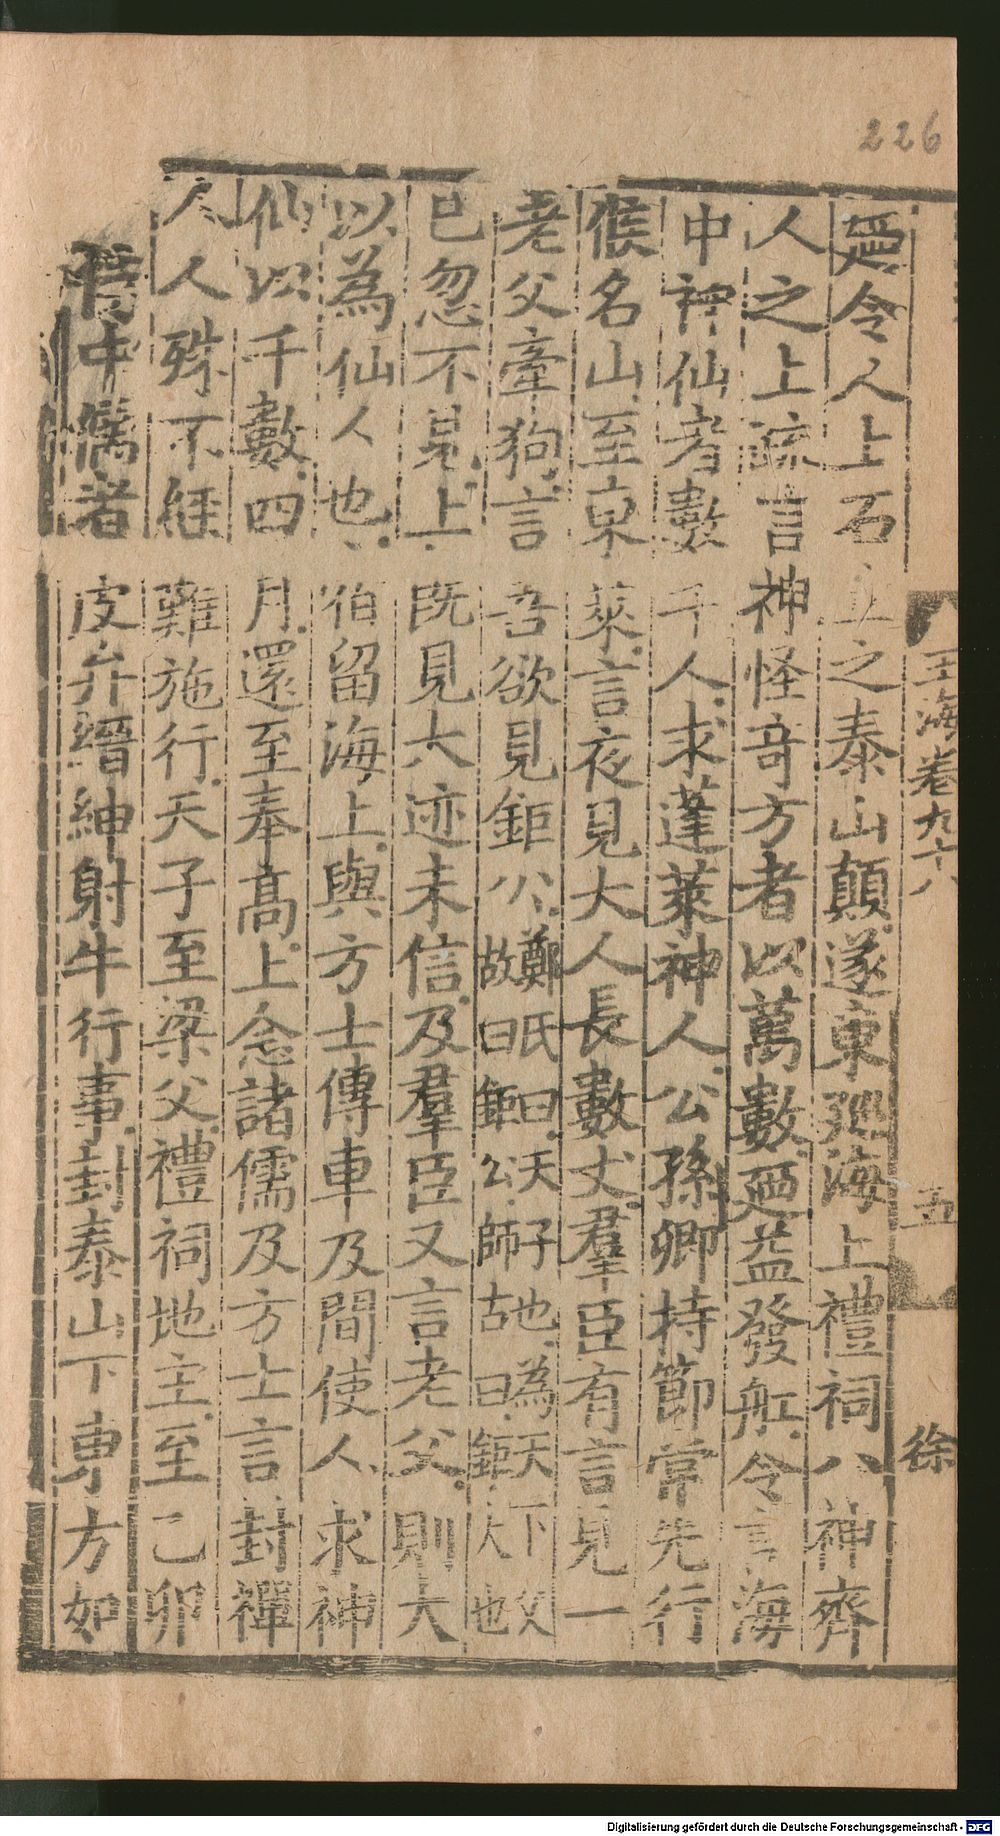 226
玉海卷九十八
五
徐
廼令人上石立之泰山顛遂東廵海上禮祠八神齊
人之上䟽言神怪竒方者以萬數廼益發舡令言海
中神仙者數千人求蓬萊神人公孫卿持節常先行
候名山至東萊言夜見大人長數丈羣臣有言見一
老父牽狗言吾欲見鉅公鄭氏曰天子也為天下父故曰鉅公師古曰鉅大也
巳忽不見上既見大迹未信及羣臣又言老父則大
以為仙人也宿留海上與方士傳車及間使人求神
仙以千數四月還至奉髙上念諸儒及方士言封禪
人人殊不經難施行天子至梁父禮祠地主至乙卯
侍中儒者皮弁縉紳射牛行事封泰山下東方如
Digitalisierung gefördert durch die Deutsche Forschungsgemeinschaft - DFG